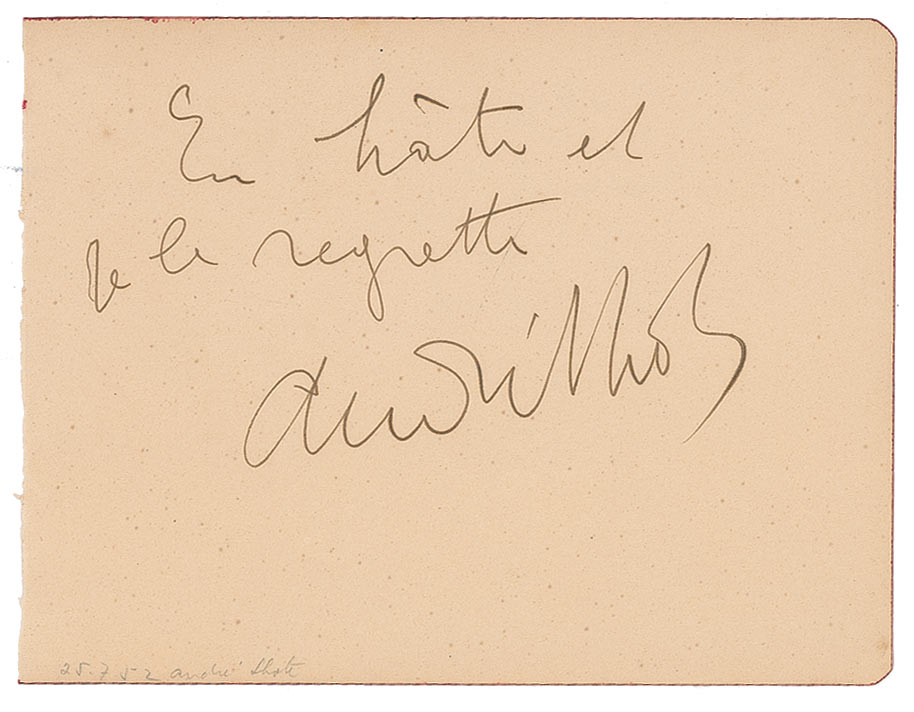 En hâte et
je le regrette
André Lhote
25.7.52 andré Lhote